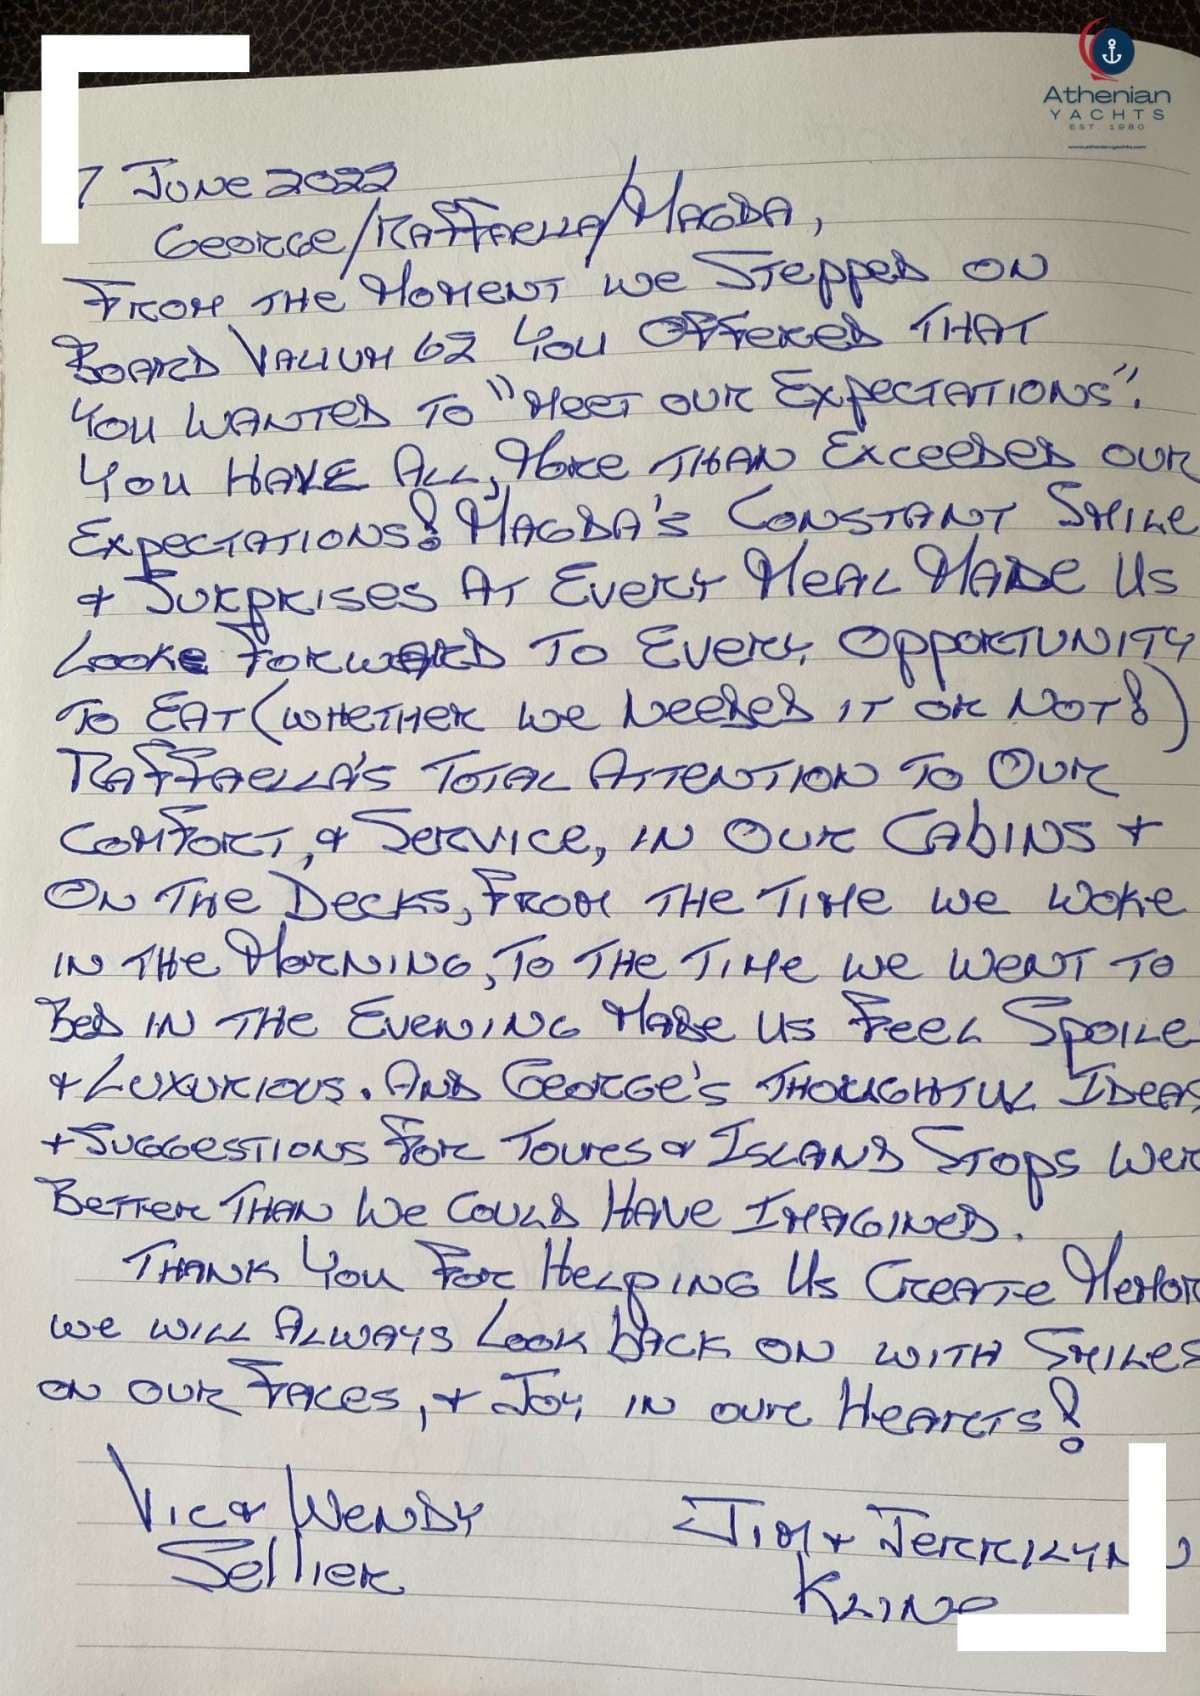 Athenian
YACHTS
EST. 1980
www.athenianyachts.com
7 JUNE 2022
GEORGE/RAFFAELLA/MAGDA,
FROM THE MOMENT WE STEPPED ON
BOARD VALIUM 62 YOU OFFERED THAT
YOU WANTED TO "MEET OUR EXPECTATIONS".
YOU HAVE ALL, MORE THAN EXCEEDED OUR
EXPECTATIONS! MAGDA'S CONSTANT SMILE
& SURPRISES AT EVERY MEAL MADE US
LOOK FORWARD TO EVERY OPPORTUNITY
TO EAT (WHETHER WE NEEDED IT OR NOT!)
RAFFAELLA'S TOTAL ATTENTION TO OUR
COMFORT, & SERVICE, IN OUR CABINS +
ON THE DECKS, FROM THE TIME WE WOKE
IN THE MORNING, TO THE TIME WE WENT TO
BED IN THE EVENING MADE US FEEL SPOILE
& LUXURIOUS. AND GEORGE'S THOUGHTFUL IDEAS
+ SUGGESTIONS FOR TOURS & ISLAND STOPS WER
BETTER THAN WE COULD HAVE IMAGINED.
THANK YOU FOR HELPING US CREATE MEMOR
WE WILL ALWAYS LOOK BACK ON WITH SMILES
ON OUR FACES, & JOY IN OUR HEARTS!
VIC & WENDY
SELLIER
JIM & JERRILYN
KLINE